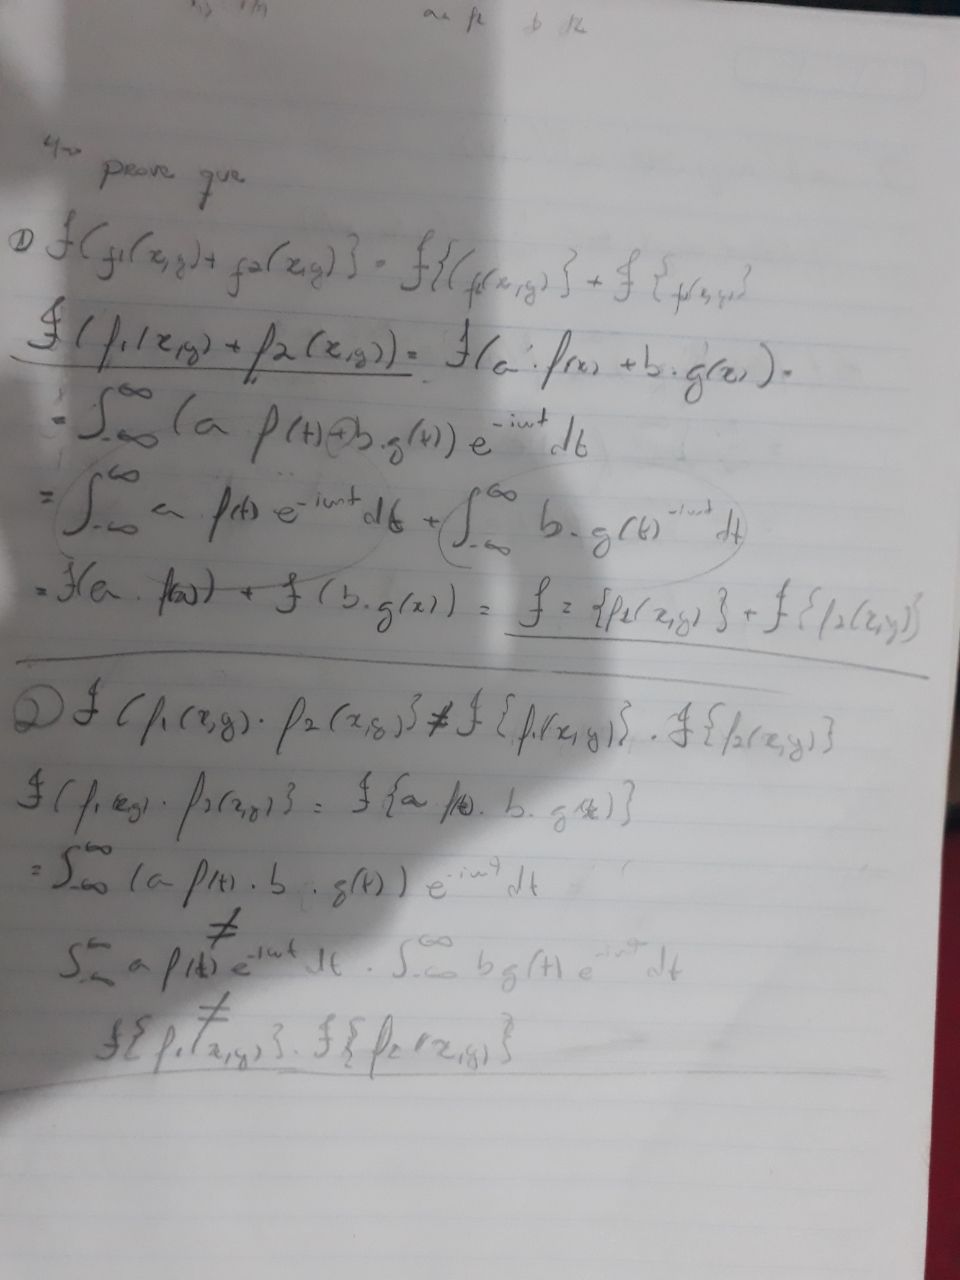 prove que
① F{f1(x,y) + f2(x,y)} = F{(f1(x,y)} + F{f2(x,y)}
F(f1(x,y) + f2(x,y)) = F(a · f(x) + b · g(x)) =
= ∫-∞^∞ (a f(t) + b · g(t)) e^-iwt dt
= ∫-∞^∞ a f(t) e^-iwt dt + ∫-∞^∞ b · g(t)^-iwt dt
= F(a · f(x)) + F(b · g(x)) = F = {f1(x,y)} + F{f2(x,y)}
② F(f1(x,y) · f2(x,y)} ≠ F{f1(x,y)} · F{f2(x,y)}
F(f1(x,y) · f2(x,y)} = F{a f(t) · b · g(t)}
= ∫-∞^∞ (a f(t) · b · g(t)) e^-iwt dt
≠
∫-∞^∞ a f(t) e^-iwt dt · ∫-∞^∞ b g(t) e^-iwt dt
≠
F{f1(x,y)} · F{f2(x,y)}